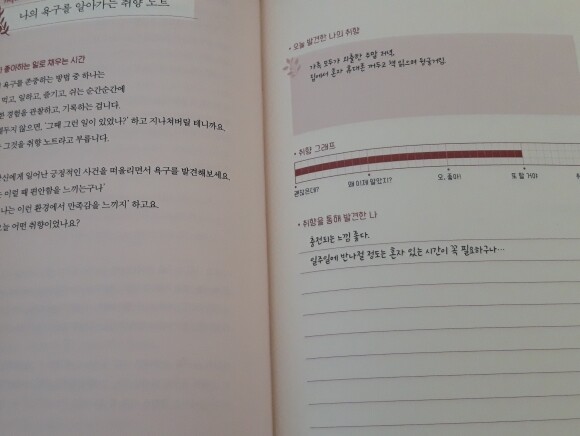 나의 욕구를 알아가는 취향 노트
좋아하는 일로 채우는 시간
욕구를 존중하는 방법 중 하나는
먹고, 말하고, 즐기고, 쉬는 순간순간에
경험을 관찰하고, 기록하는 겁니다.
않으면, '그때 그런 일이 있었나?' 하고 지나쳐버릴 테니까요.
그것을 취향 노트라고 부릅니다.
일어난 긍정적인 사건을 떠올리면서 욕구를 발견해보세요.
이럴 때 편안함을 느끼는구나'
나는 이런 환경에서 만족감을 느끼지' 하고요.
어떤 취향이었나요?
• 오늘 발견한 나의 취향
가족 모두가 외출한 주말 저녁.
집에서 혼자 휴대폰 꺼두고 책 읽으며 뒹굴거림.
• 취향 그래프
괜찮은데?
왜 이제 알았지?
오, 좋아!
또 할 거야
• 취향을 통해 발견한 나
충전되는 느낌 좋다.
일주일에 반나절 정도는 혼자 있는 시간이 꼭 필요하구나…